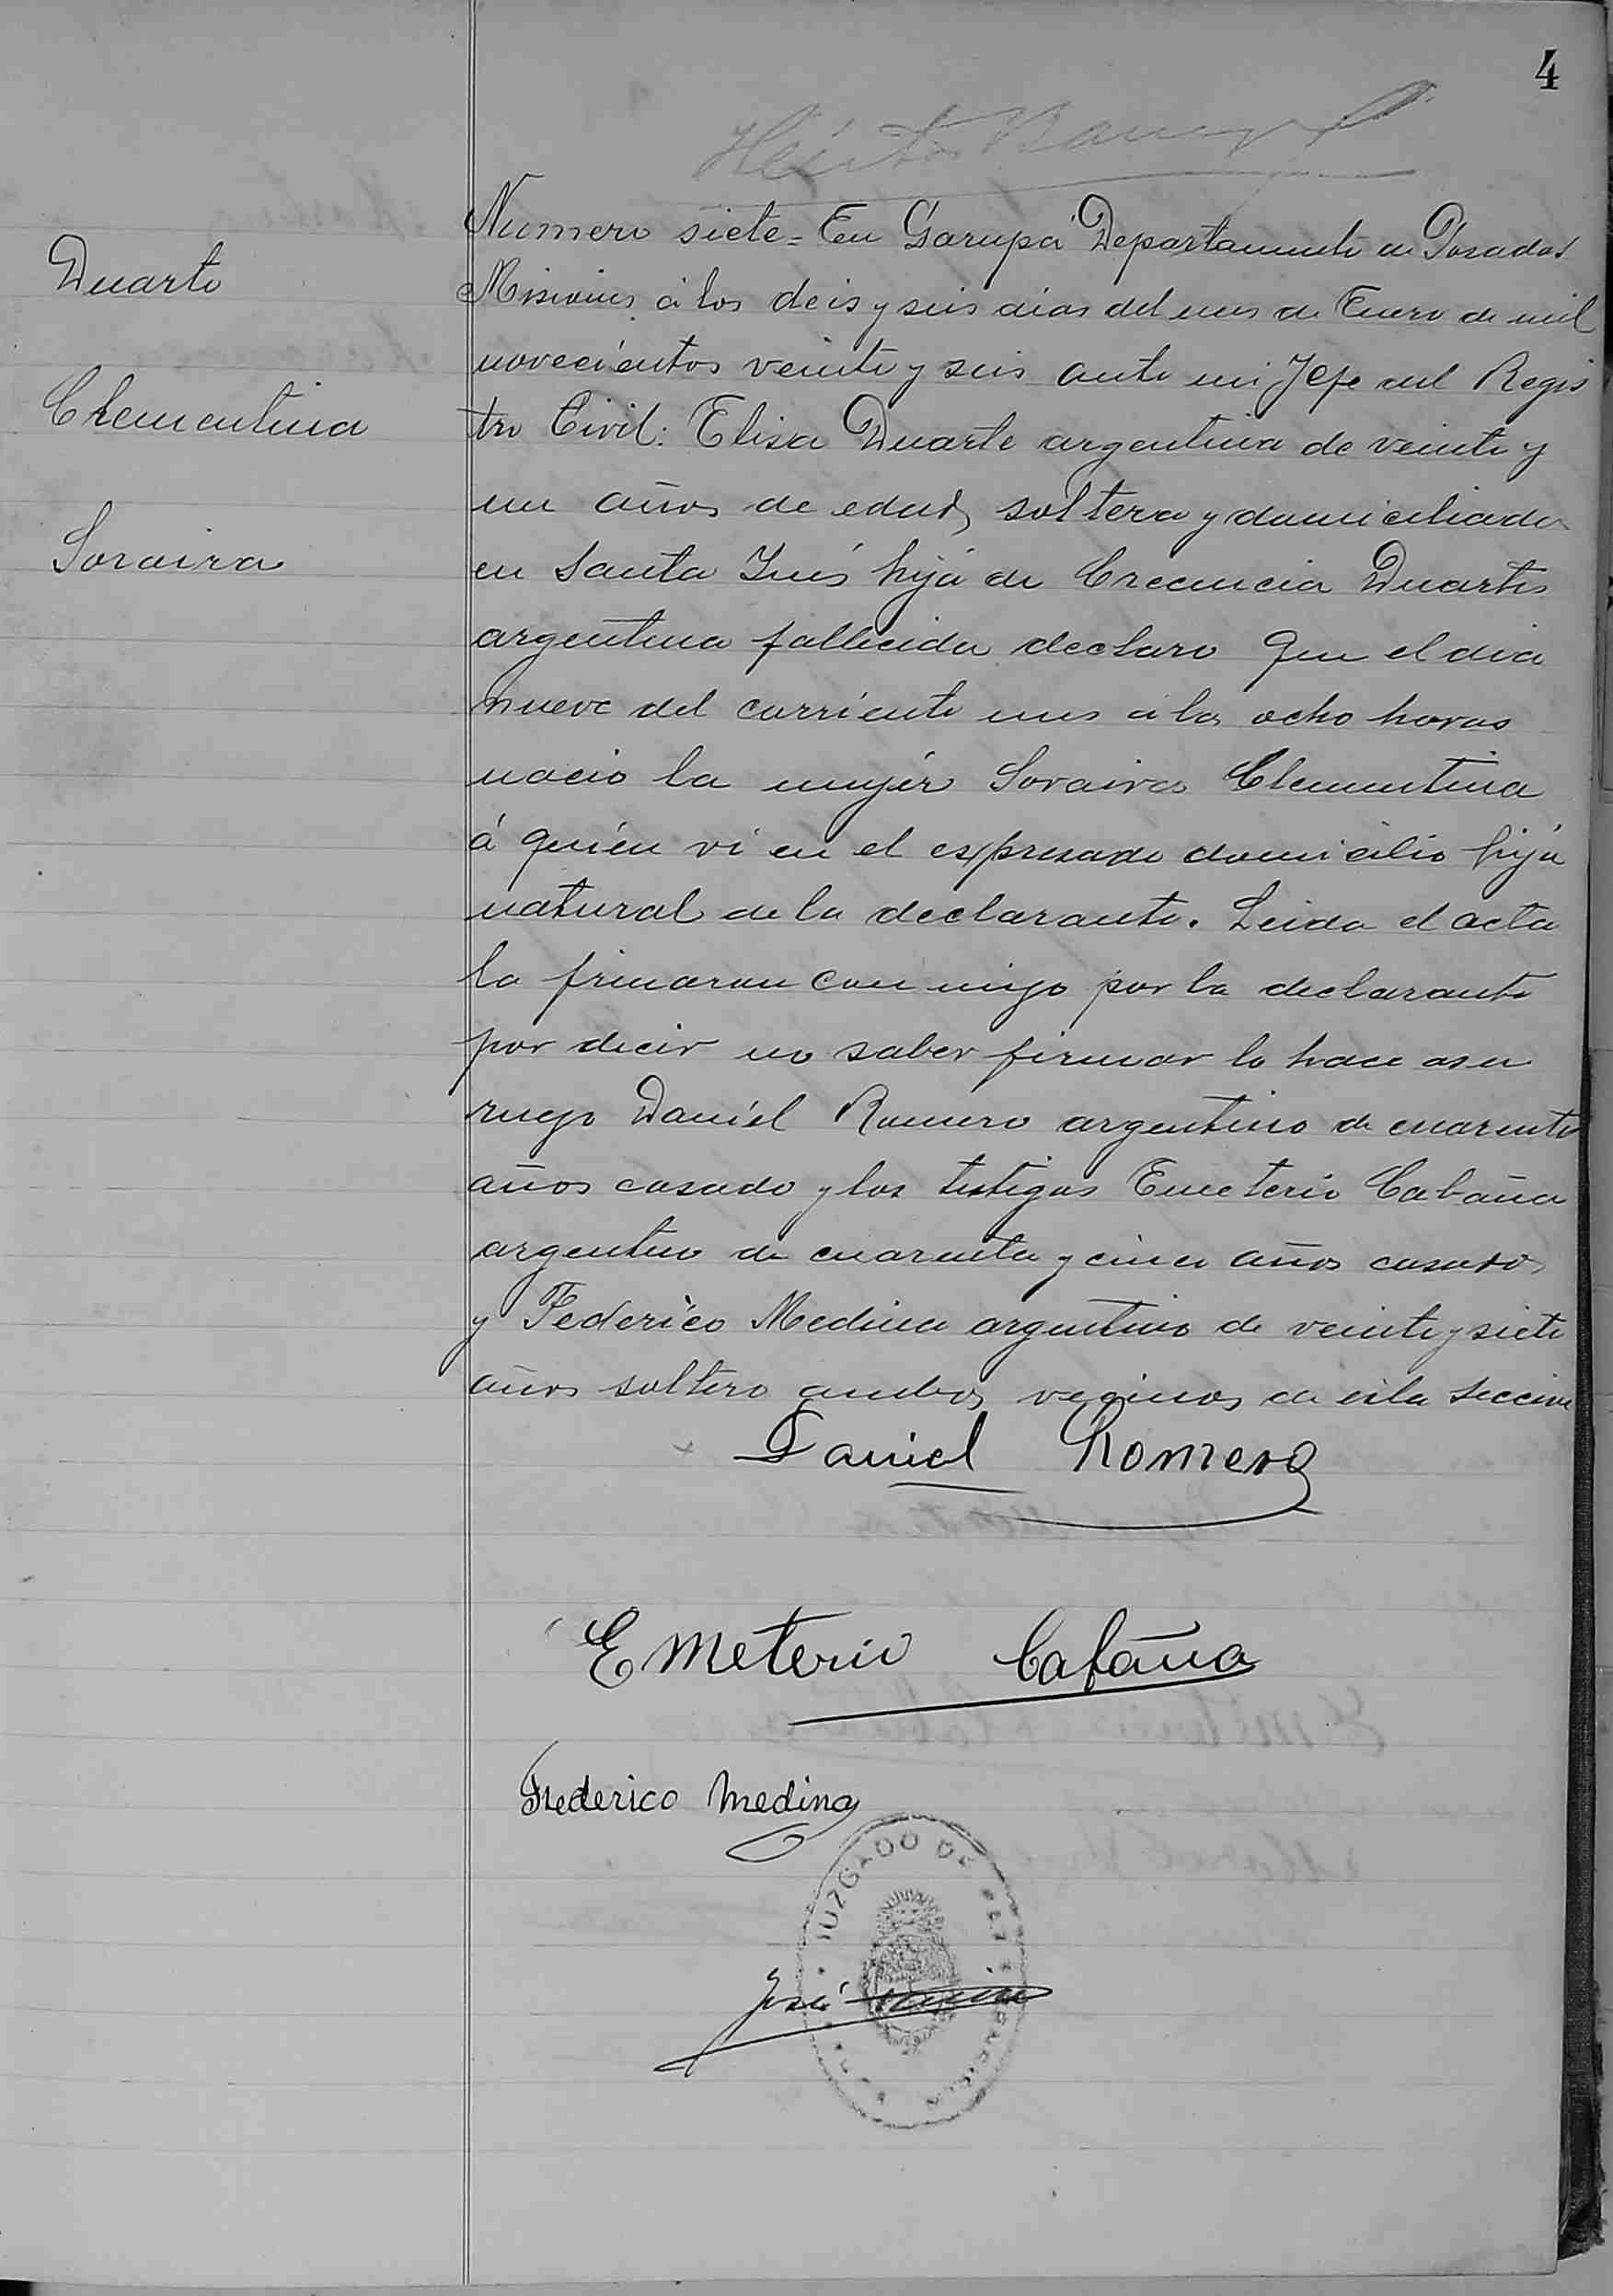 4
Duarte
Clementina
Soraira
Numero siete = En Garupá Departamento de Posadas
Misiones á los deis y seis dias del mes de Enero de mil
novecientos veinte y seis ante mi Jefe del Regis
tro Civil: Elisa Duarte argentina de veinte y
un años de edad, soltera y domiciliada
en Santa Inés hija de Crecencia Duarte
argentina fallecida declaro que el dia
nueve del corriente mes á las ocho horas
nacio la mujér Soraira Clementina
á quién vi en el expresado domicilio hija
natural de la declarante. Leida el acta
la frimaron con migo por la declarante
por decir no saber firmar lo hace asu
ruego Daniel Romero argentino de cuarenta
años casado y los testigos Emeterio Cabaña
argentino de cuarenta y cinco años casado
y Federico Medina argentino de veinte y siete
años soltero ambos veginos de esta seccion
Daniel Romero
Emeterio Cabaña
Frederico Medina
JUZGADO DE PAZ
José